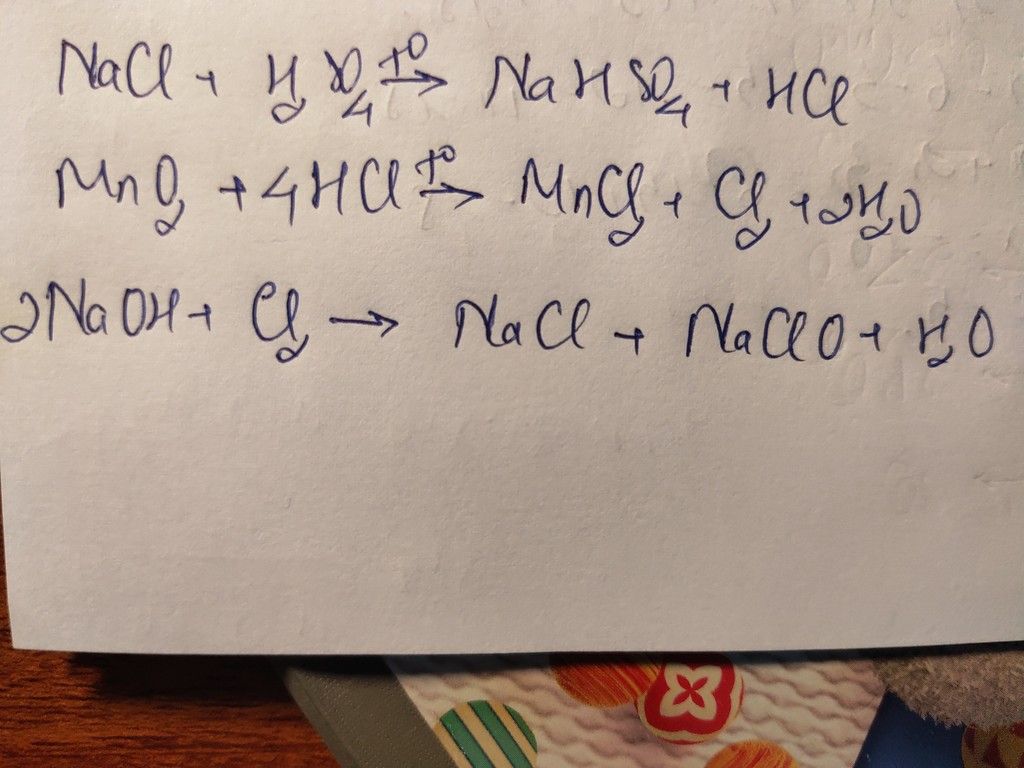 NaCl + H₂SO₄ t° → NaHSO₄ + HCl
MnO₂ + 4HCl t° → MnCl₂ + Cl₂ + 2H₂O
2NaOH + Cl₂ → NaCl + NaClO + H₂O